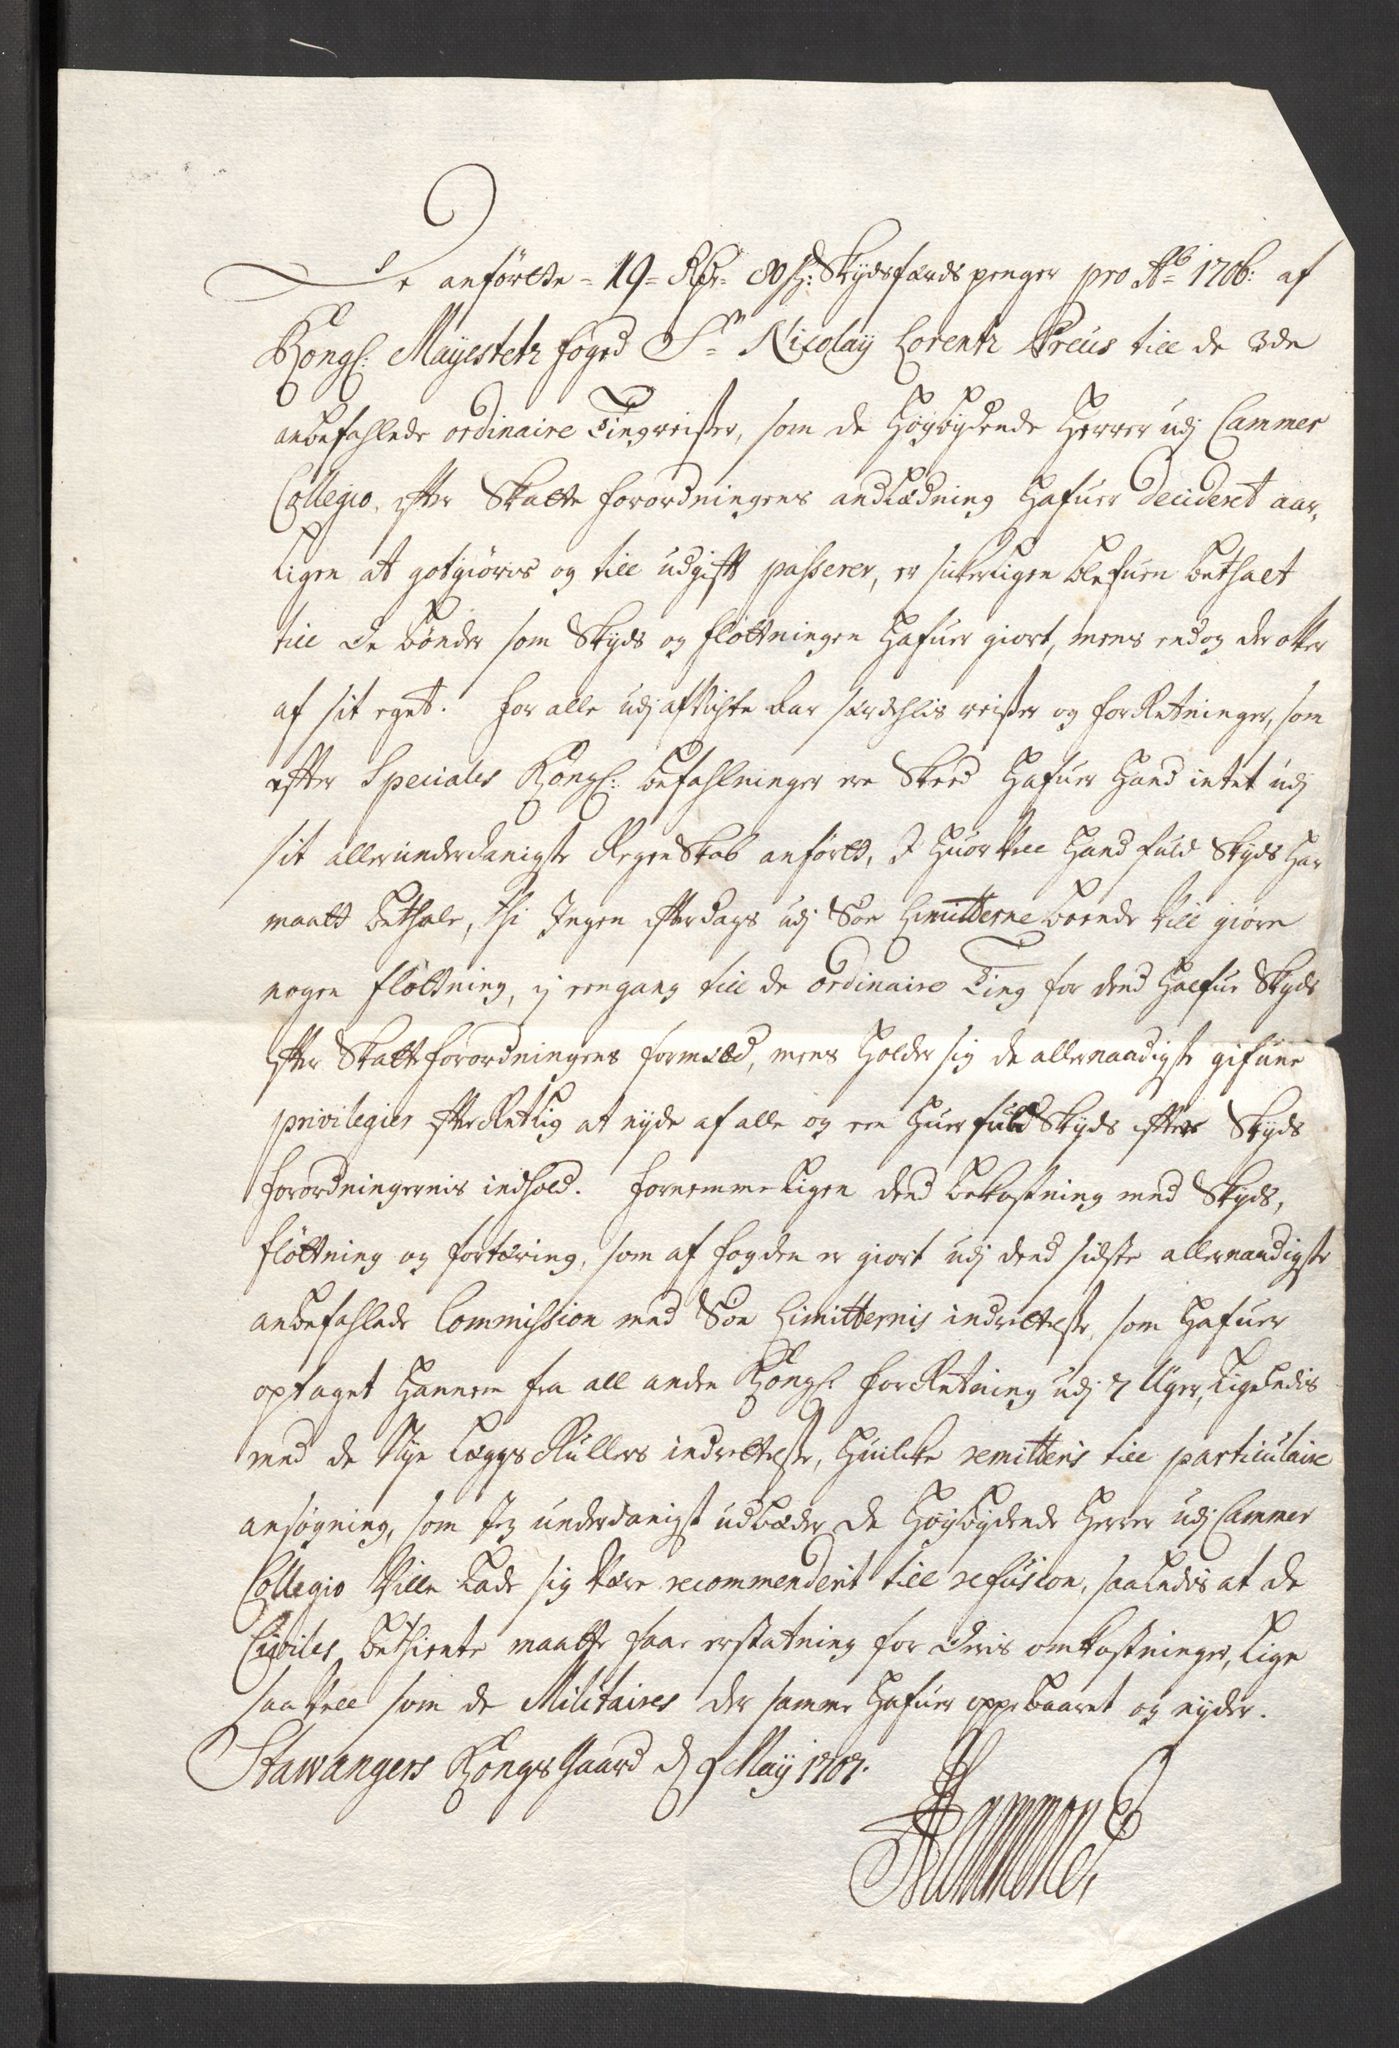 De anførtte - 19 - Rdr - 80 s: Skydsfærds penger pro Ao 1706: af
Kongl: Mayestetz foged Sr Nicolay Lorentz Preus till de 3de
anbefahlede ordinaire Tingreiser, som de Høybydende Herrer udj Cammer
Collegio, efter Skatte forordningens andledning hafuer decideret aar-
ligen at gotgiøres og till udgift passerer, er sikerligen blefuen bethalt
till de bønder som Skyds og fløttningen hafuer giort, mens endog der offer
af sit eget. For alle udj afvigte aar særdehlis reiser og forRetninger, som
efter Speciales Kongl: befahlninger ere Skeed hafuer hand intet udj
sit allerunderdanigste RegenSkab anførtt, I huor vell hand fuld Skyds har
maatt bethale, thi Ingen efterdags udj Søe Limitterne boende vill giøre
nogen fløttning, ej eengang till de ordinaire Ting for dend halfue Skyds
efter Skatt forordningens formæld, mens holder sig de allernaadigste gifuene
privilegier efterRetlig at nyde af alle og een huer fuld Skyds efter Skyds
forordningernis indhold. Fornemmeligen dend bekostning med Skyds,
fløttning og fortæring, som af fogden er giort udj dend sidste allernaadigste
anbefahlede Commission med Søe Limitternis indrettelse, som hafuer
optaget hannem fra all anden Kongl: forRetning udj 7 Uger, Ligeledis
med de Nye Lægs Rullers indrettelse, huilcke remitteris till particulaire
ansøgning, som Jeg underdanigst udbeder de Høybydende Herrer udj Cammer
Collegio ville lade sig være recommenderit till refusion, saaledis at de
Civiles bethiente maatte faae erstatning for deris omkostninger, lige
saa vell som de Militaires der samme hafuer oppebaaret og nyder.
Stawangers Kongsgaard d 9 Maij 1707.